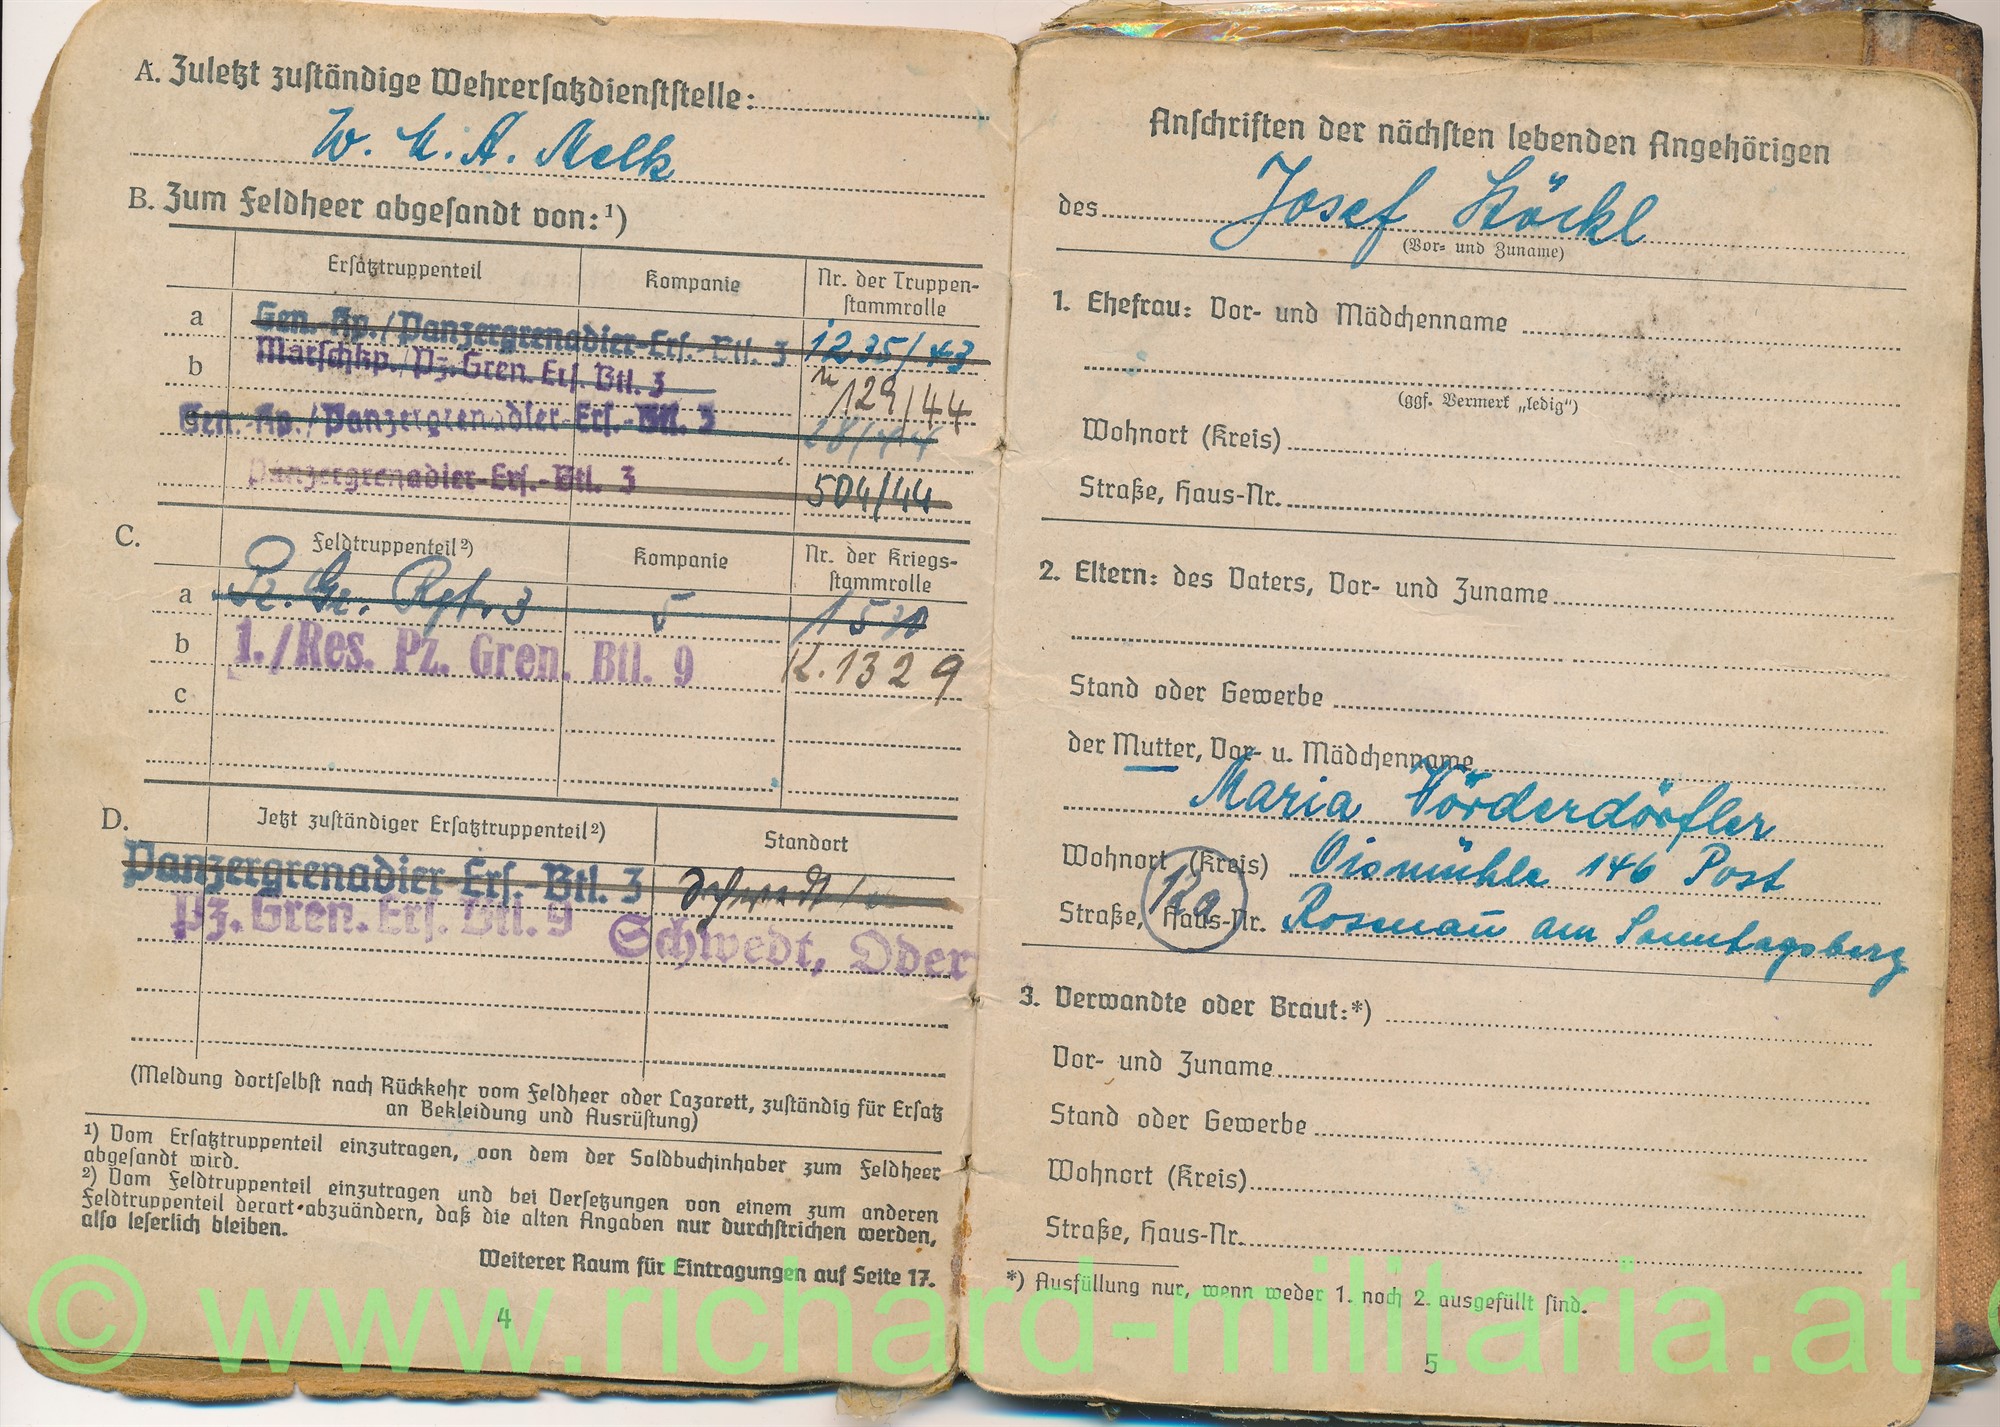 A. Zuletzt zuständige Wehrersatzdienststelle:
W. M. A. Melk
B. Zum Feldheer abgesandt von:¹)
Ersatztruppenteil Kompanie Nr. der Truppen-
stammrolle
a Gen.-Kp./Panzergrenadier-Ers.-Btl. 3 1235/43
b Marschkp./Pz. Gren. Ers. Btl. 3 129/44
Gen.-Kp./Panzergrenadier-Ers.-Btl. 3 28/44
Panzergrenadier-Ers.-Btl. 3 504/44
C. Feldtruppenteil²) Kompanie Nr. der Kriegs-
stammrolle
a Pz. Gr. Rgt. 3 5
b 1./Res. Pz. Gren. Btl. 9 K. 1329
c
D. Jetzt zuständiger Ersatztruppenteil²) Standort
Panzergrenadier-Ers.-Btl. 3 Schwedt
Pz. Gren. Ers. Btl. 9 Schwedt, Oder
(Meldung dortselbst nach Rückkehr vom Feldheer oder Lazarett, zuständig für Ersatz
an Bekleidung und Ausrüstung)
¹) Vom Ersatztruppenteil einzutragen, von dem der Soldbuchinhaber zum Feldheer
abgesandt wird.
²) Vom Feldtruppenteil einzutragen und bei Versetzungen von einem zum anderen
Feldtruppenteil derart abzuändern, daß die alten Angaben nur durchstrichen werden,
also leserlich bleiben.
Weiterer Raum für Eintragungen auf Seite 17.
4
Anschriften der nächsten lebenden Angehörigen
des Josef Stöckl
(Vor- und Zuname)
1. Ehefrau: Vor- und Mädchenname
(ggf. Vermerk „ledig“)
Wohnort (Kreis)
Straße, Haus-Nr.
2. Eltern: des Vaters, Vor- und Zuname
Stand oder Gewerbe
der Mutter, Vor- u. Mädchenname
Maria Vörderdörfler
Wohnort (Kreis) Oismühle 146 Post
Straße, Haus-Nr. Rosenau am Sonntagsberg
3. Verwandte oder Braut:*)
Vor- und Zuname
Stand oder Gewerbe
Wohnort (Kreis)
Straße, Haus-Nr.
*) Ausfüllung nur, wenn weder 1. noch 2. ausgefüllt sind.
5
© www.richard-militaria.at ©